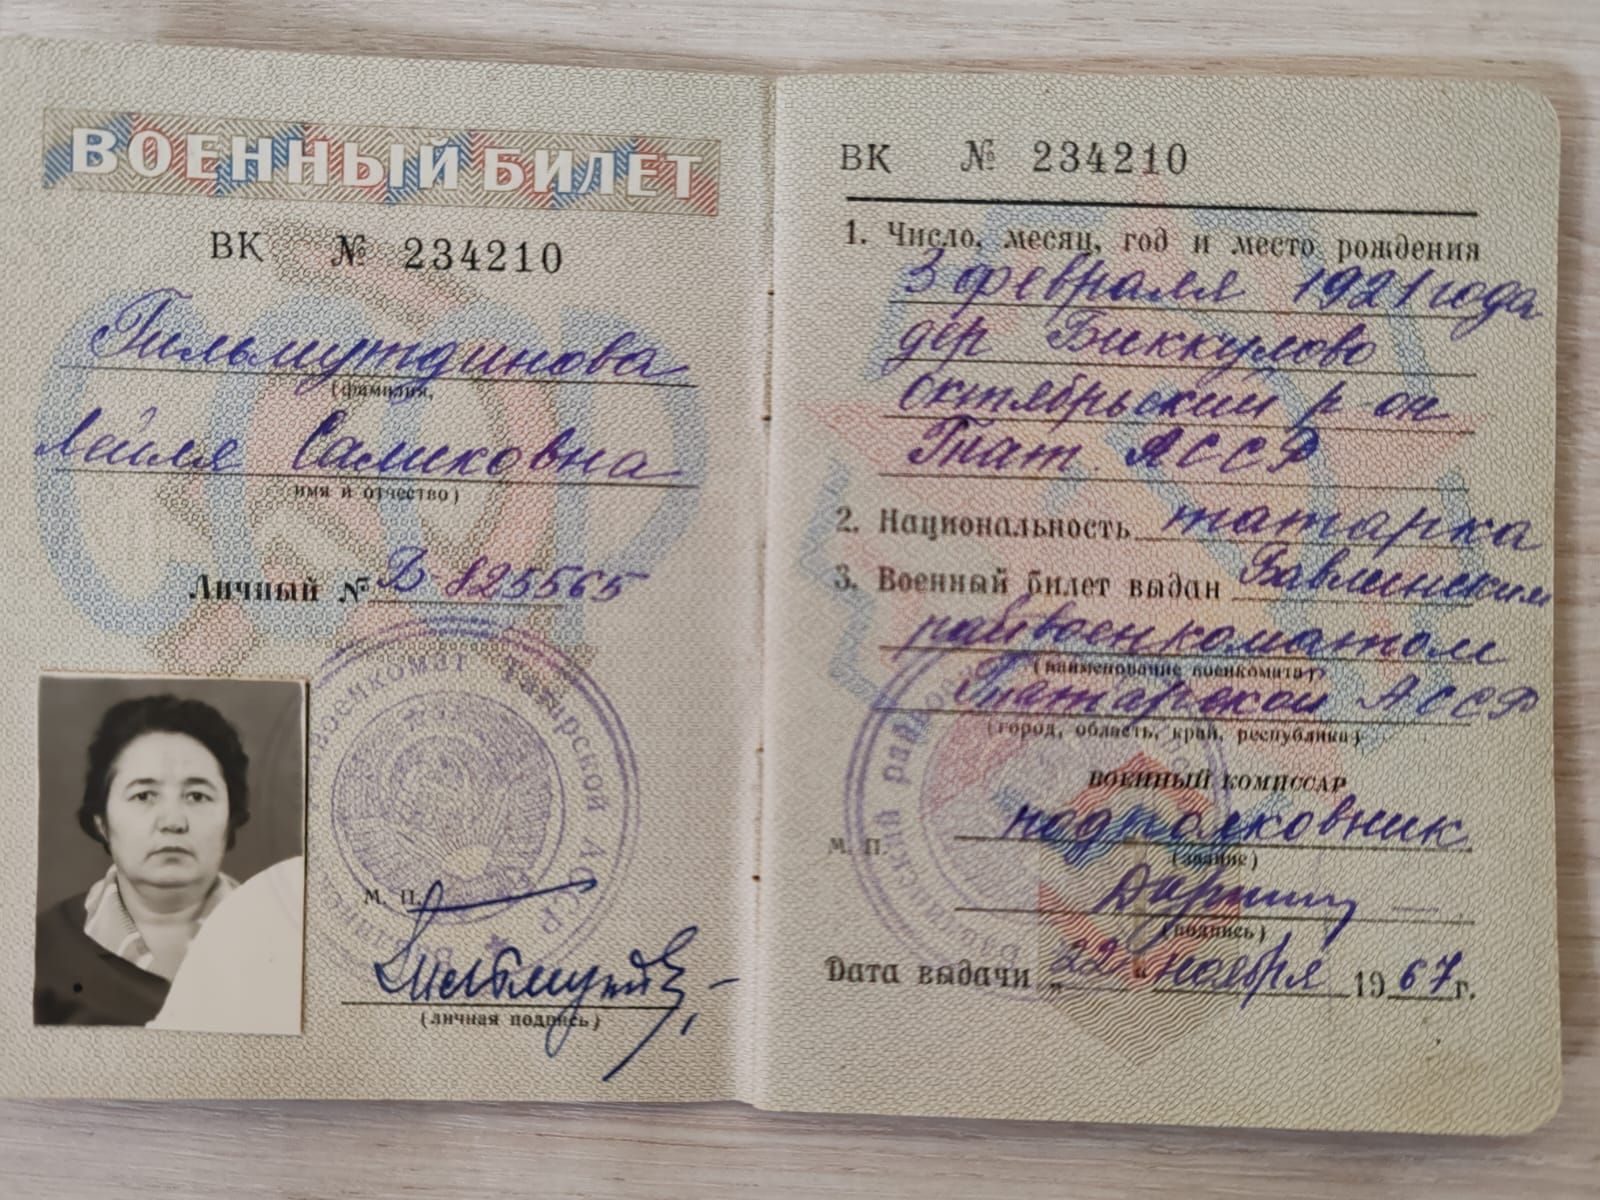 ВОЕННЫЙ БИЛЕТ
ВК № 234210
Гильмутдинова
(фамилия,
Лейля Салиховна
имя и отчество)
Личный № В-825565
военкомат Татарской АССР
М. П.
(личная подпись)
ВК № 234210
1. Число, месяц, год и место рождения
3 февраля 1921 года
дер Биккулово
октябрьский р-он
Тат. АССР
2. Национальность татарка
3. Военный билет выдан Бавлинским
райвоенкоматом
(наименование военкомата)
Татарской АССР
(город, область, край, республика)
ВОЕННЫЙ КОМИССАР
подполковник
(звание)
М. П.
(подпись)
Дата выдачи „22“ ноября 1967 г.